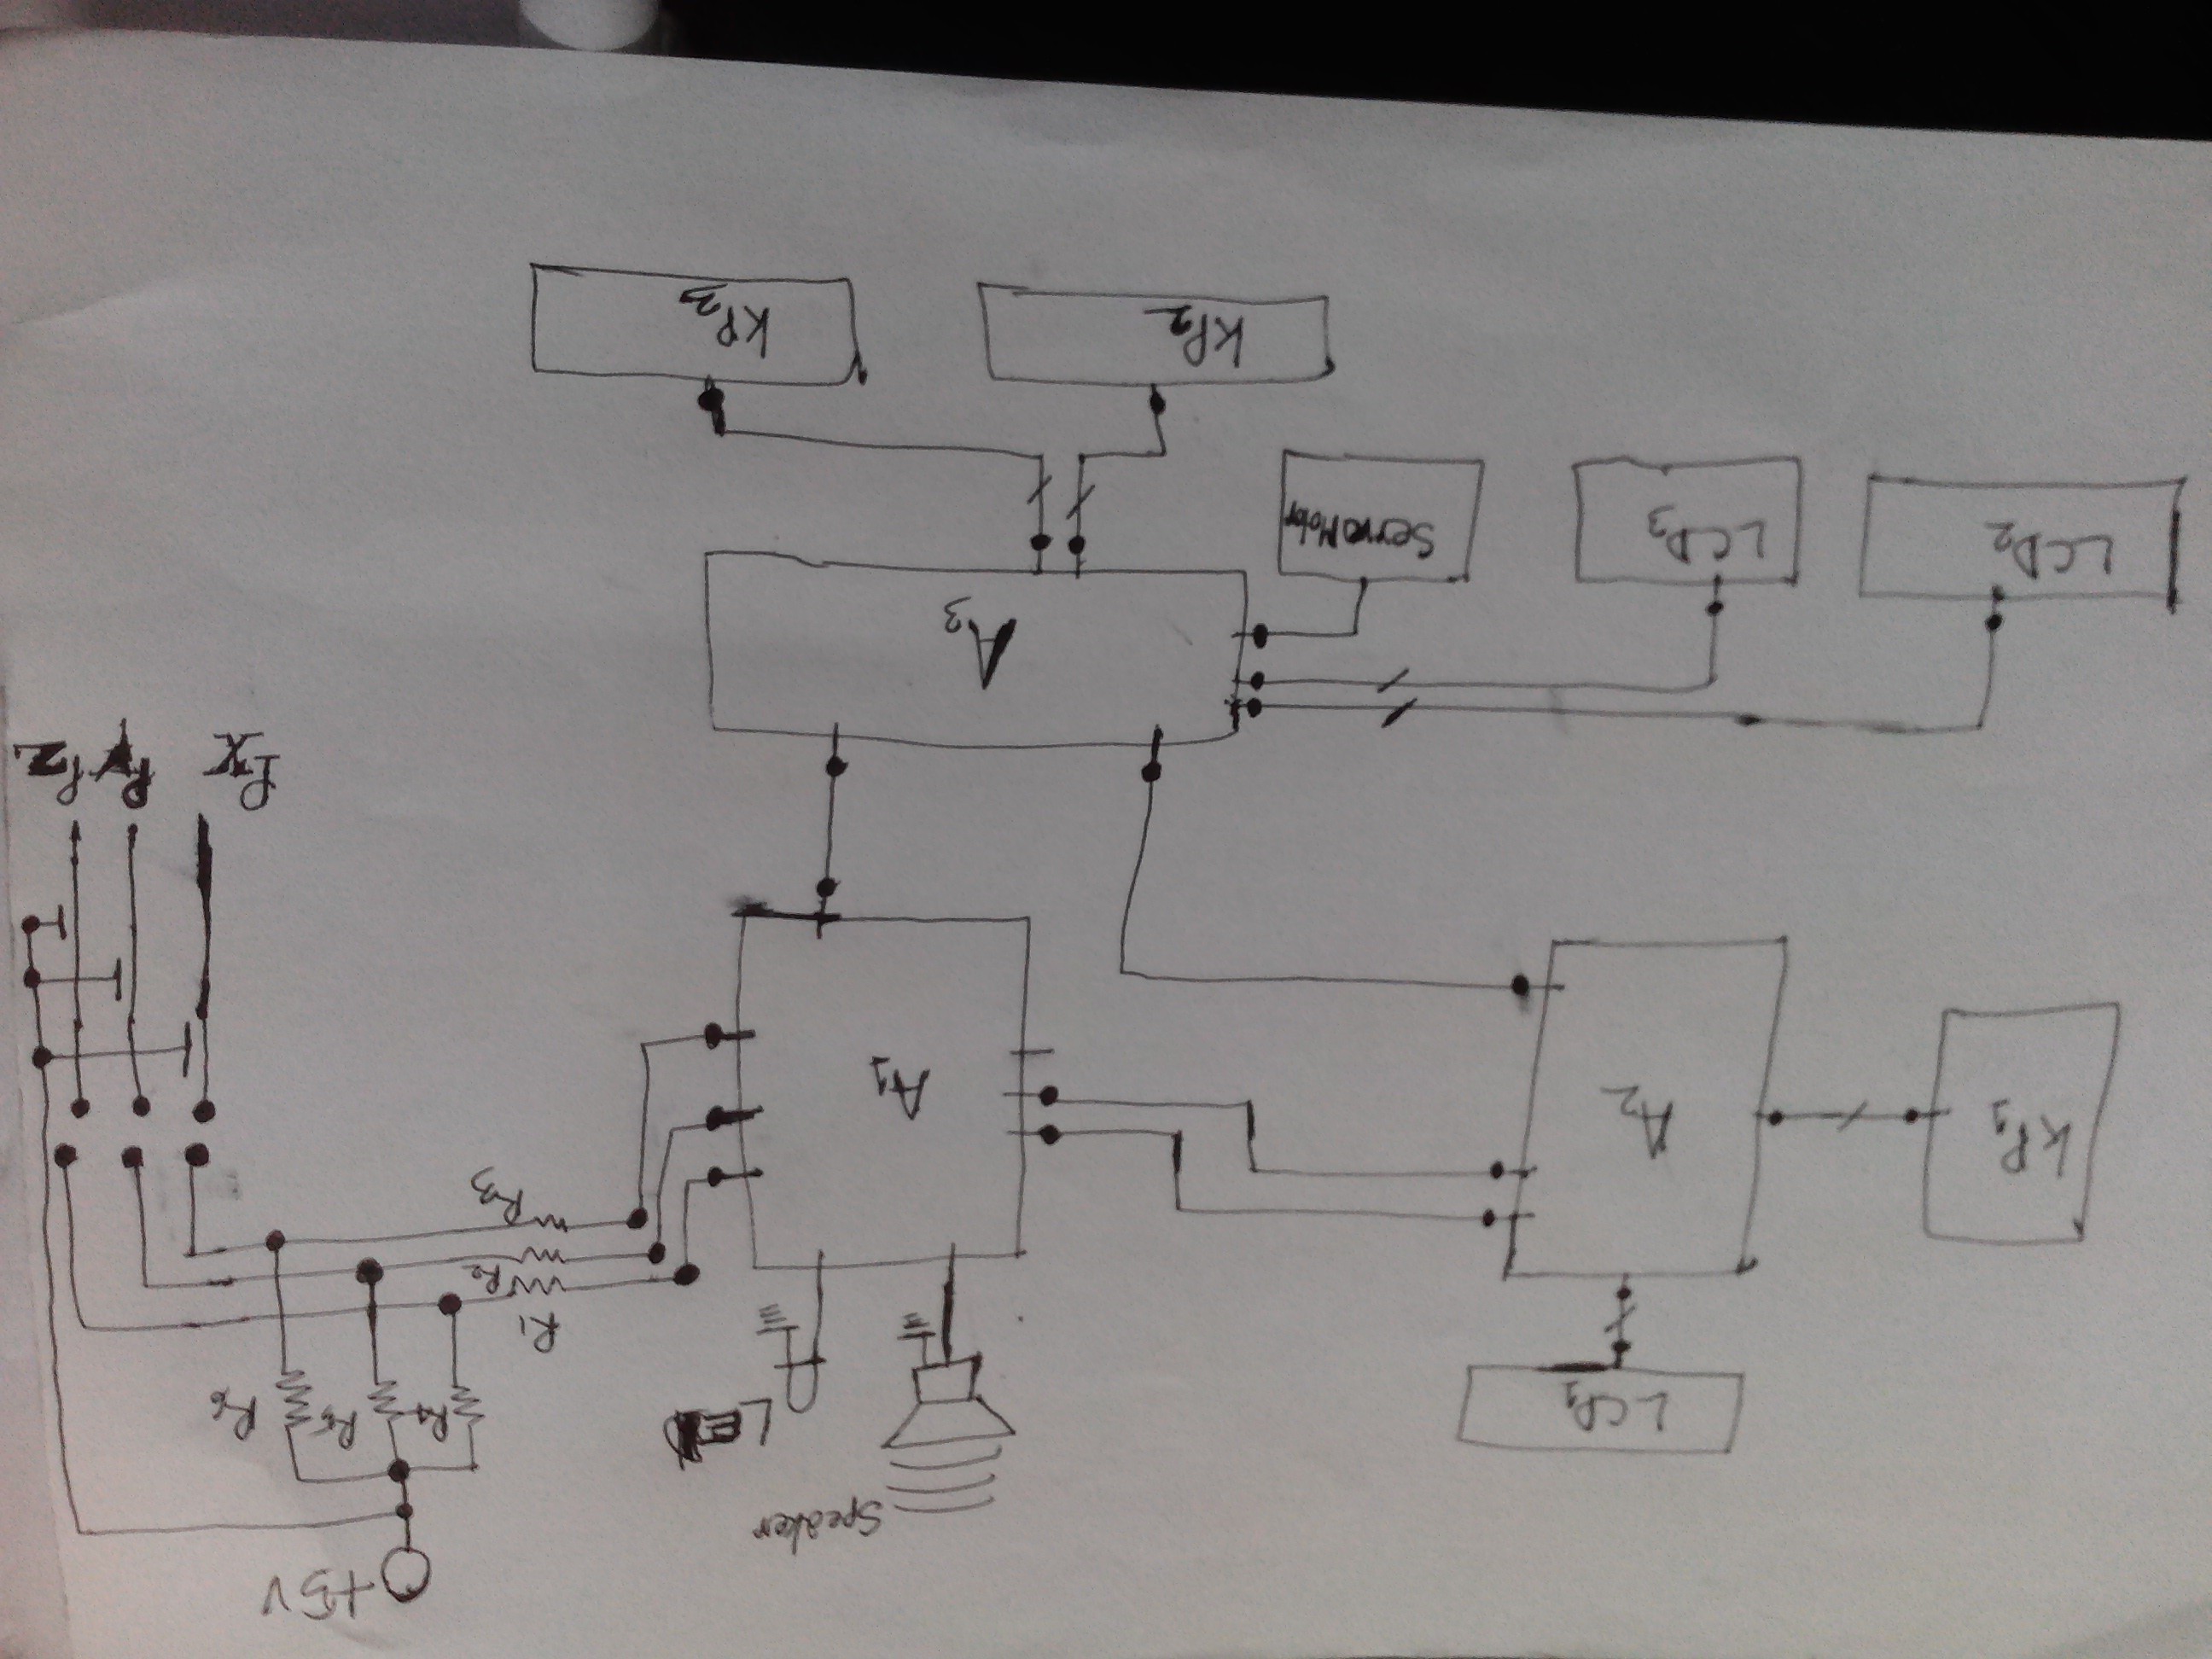 +5V
Speaker
LED
R4
R5
R6
LCD1
R1
R2
R3
KP1
A2
A1
Px
Py
Pz
A3
LCD2
LCD3
Servo Motor
KP2
KP3